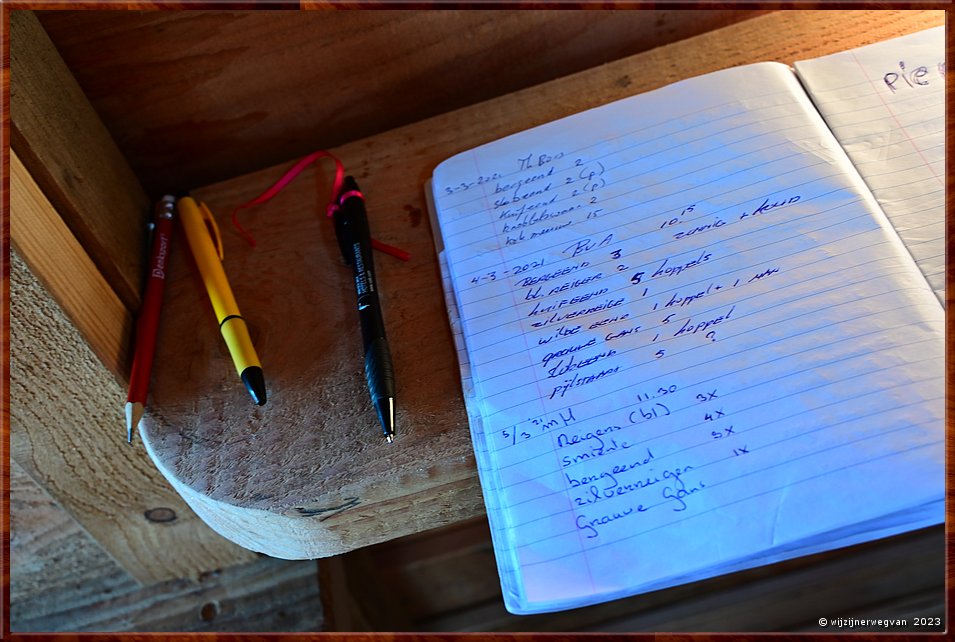 3-3-2021 Th Bos
bergeend 2
Slobeend 2 (p)
Kuifeend 2 (p)
knobbelzwaan 2
kok meeuw 15
4-3-2021 BVA 10.15
BERGEEND 3 ZONNIG + KOUD
bl. REIGER 2
KUIFEEND 5 koppels
ZILVERREIGER 1
WILDE EEND 1 koppel + 1 MAN
GRAUWE GANS 5
SLOBEEND 1 koppel
PIJLSTAART 5 ?
5/3 '21 MH 11.30
Reigers (bl) 3x
Smiente 4x
bergeend 3x
zilverreiger 1x
Grauwe Gans
Pie
Denksport
© wijzijnerwegvan 2023